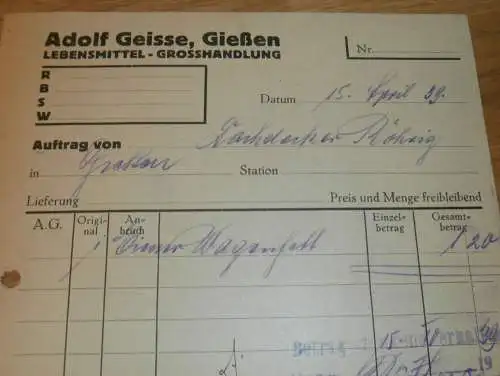 Adolf Geisse, Gießen
LEBENSMITTEL - GROSSHANDLUNG
Nr.
R
B
S
W
Datum 15. April 39.
Auftrag von Dachdecker Röhrig
in Station
Lieferung Preis und Menge freibleibend
A.G. Origi- nal An- bruch Einzel- betrag Gesamt- betrag
1 Eimer Wagenfett 1 20
Betrag